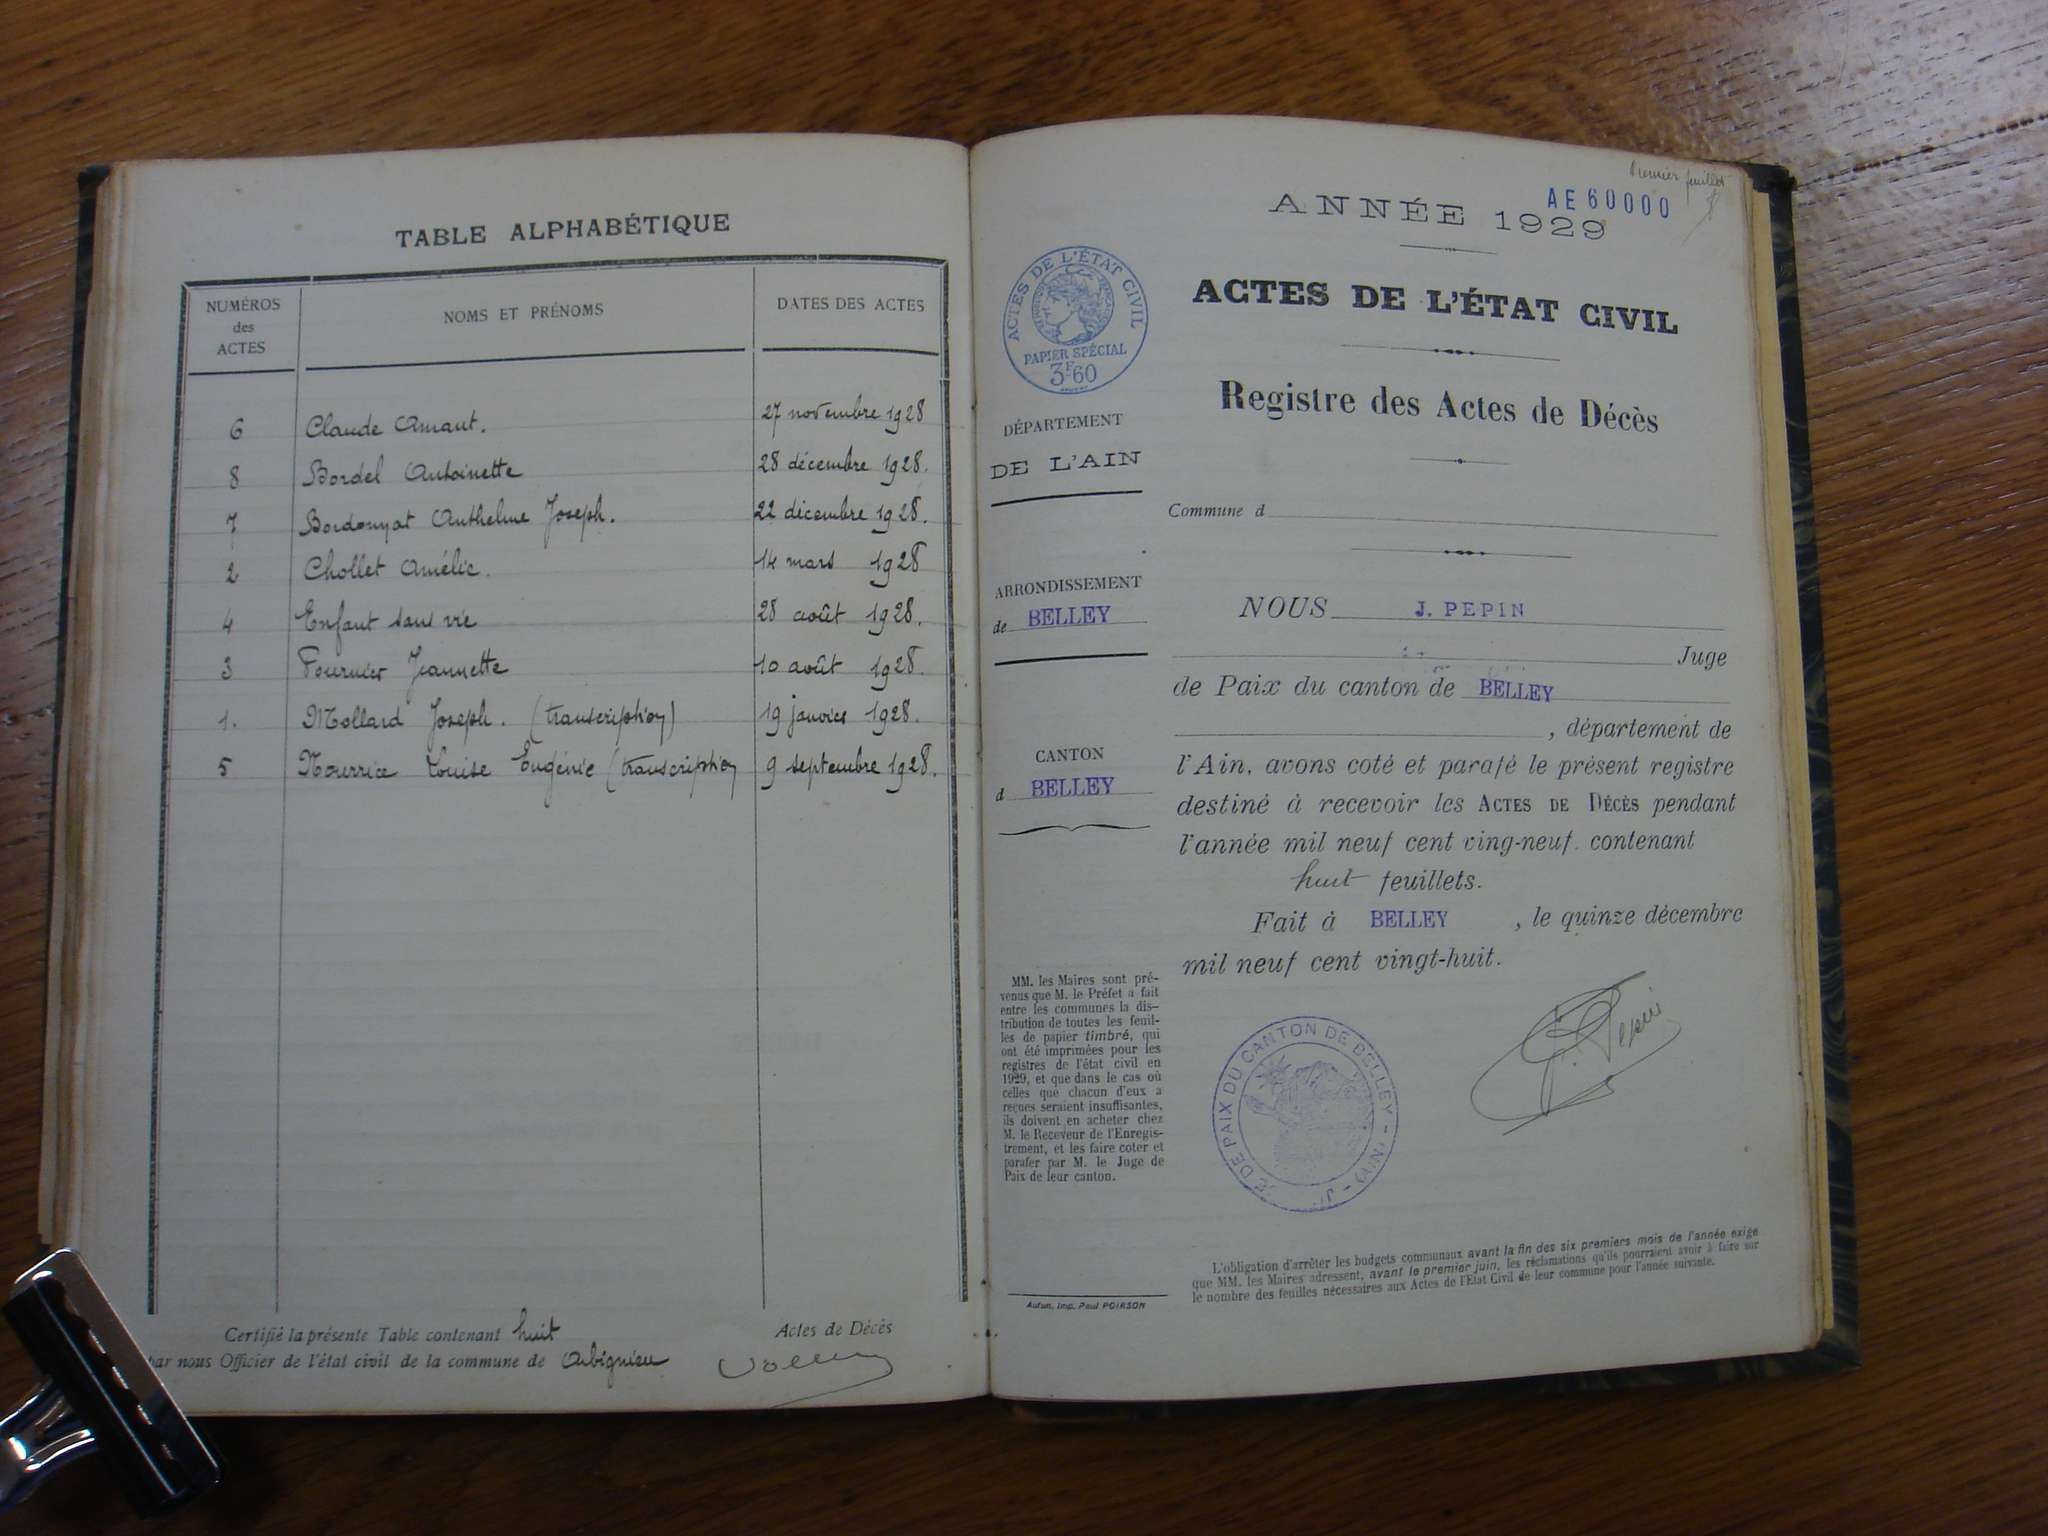 TABLE ALPHABÉTIQUE
NUMÉROS des ACTES NOMS ET PRÉNOMS DATES DES ACTES
6 Claude Amaut. 27 novembre 1928
8 Bordel Antoinette 28 décembre 1928.
7 Anthelme Joseph. 22 décembre 1928.
2 Chollet Amélie. 14 mars 1928
4 Enfant sans vie 28 août 1928.
3 Fournier Jeannette 10 août 1928.
1. Mollard Joseph. (transcription) 19 janvier 1928.
5 Nourrice Louise Eugénie (transcription 9 septembre 1928.
Certifié la présente Table contenant huit Actes de Décès
par nous Officier de l'état civil de la commune de Arbignieu
Premier feuillet
AE 60000
ANNÉE 1929
ACTES DE L'ÉTAT CIVIL
PAPIER SPÉCIAL
3F60
ACTES DE L'ÉTAT CIVIL
Registre des Actes de Décès
DÉPARTEMENT
DE L'AIN
Commune d
ARRONDISSEMENT
de BELLEY
NOUS J. PEPIN
Juge
de Paix du canton de BELLEY
, département de
CANTON
d BELLEY
l'Ain, avons coté et parafé le présent registre
destiné à recevoir les ACTES DE DÉCÈS pendant
l'année mil neuf cent ving-neuf. contenant
huit feuillets.
Fait à BELLEY , le quinze décembre
mil neuf cent vingt-huit.
MM. les Maires sont pré-
venus que M. le Préfet a fait
entre les communes la dis-
tribution de toutes les feuil-
les de papier timbré, qui
ont été imprimées pour les
registres de l'état civil en
1929, et que dans le cas où
celles que chacun d'eux a
reçues seraient insuffisantes,
ils doivent en acheter chez
M. le Receveur de l'Enregis-
trement, et les faire coter et
parafer par M. le Juge de
Paix de leur canton.
J. Pepin
JE DE PAIX DU CANTON DE BELLEY - (AIN) -
L'obligation d'arrêter les budgets communaux avant la fin des six premiers mois de l'année exige
que MM. les Maires adressent, avant le premier juin, les réclamations qu'ils pourraient avoir à faire sur
le nombre des feuilles nécessaires aux Actes de l'État Civil de leur commune pour l'année suivante.
Autun, Imp. Paul POIRSON